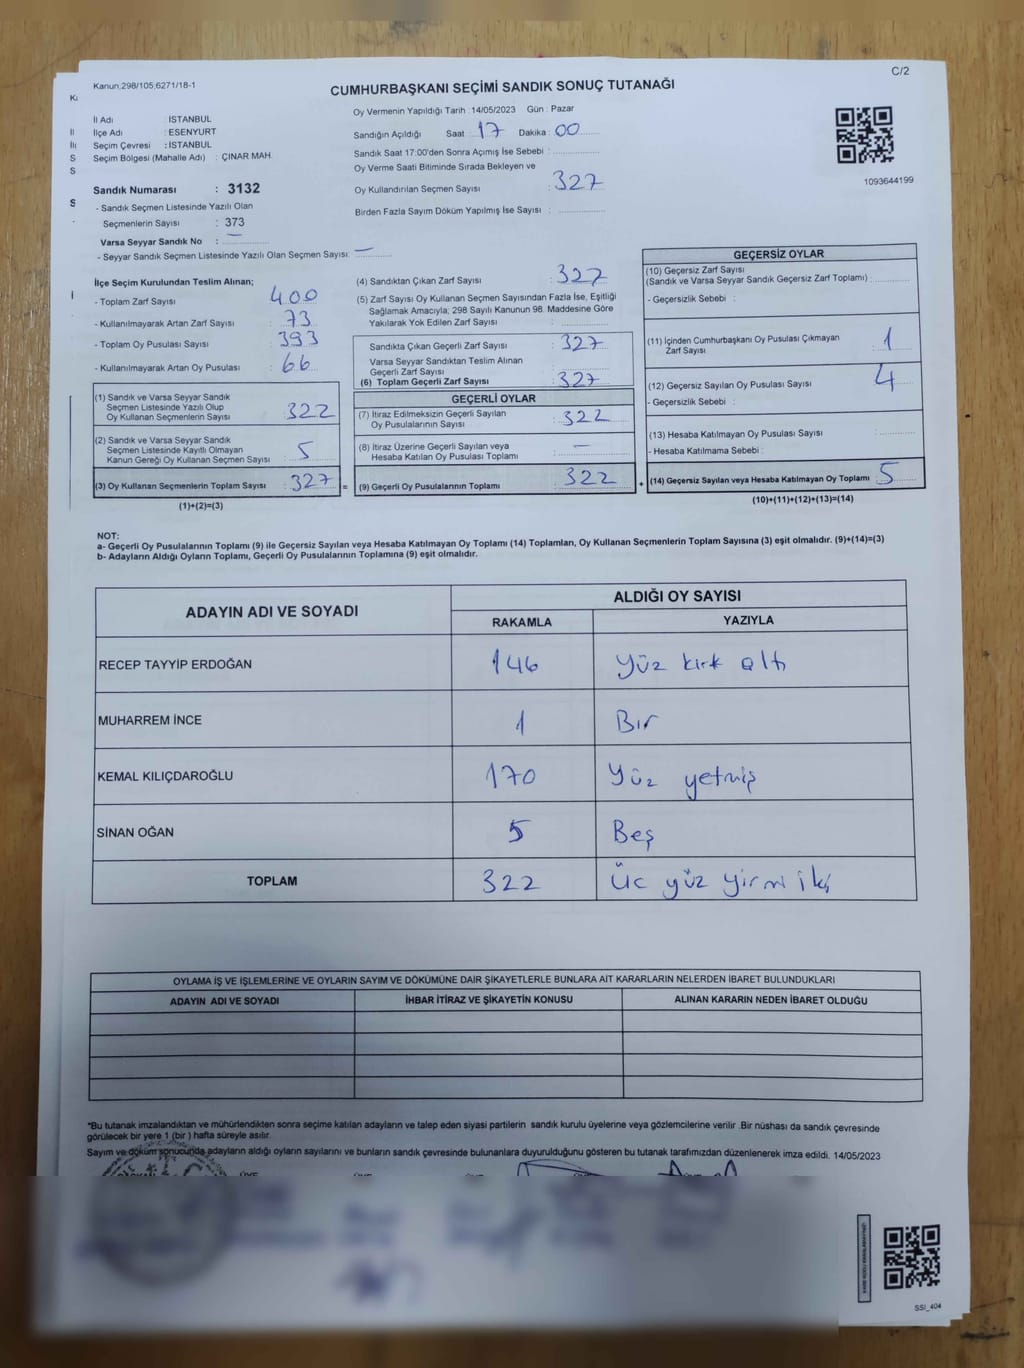 C/2
Kanun;298/105;6271/18-1
CUMHURBAŞKANI SEÇİMİ SANDIK SONUÇ TUTANAĞI
İl Adı : İSTANBUL
İlçe Adı : ESENYURT
Seçim Çevresi : İSTANBUL
Seçim Bölgesi (Mahalle Adı) : ÇINAR MAH.
Sandık Numarası : 3132
- Sandık Seçmen Listesinde Yazılı Olan
Seçmenlerin Sayısı : 373
Varsa Seyyar Sandık No : —
- Seyyar Sandık Seçmen Listesinde Yazılı Olan Seçmen Sayısı: —
Oy Vermenin Yapıldığı Tarih :14/05/2023 Gün : Pazar
Sandığın Açıldığı Saat : 17 Dakika : 00
Sandık Saat 17:00'den Sonra Açımış İse Sebebi :
Oy Verme Saati Bitiminde Sırada Bekleyen ve
Oy Kullandırılan Seçmen Sayısı : 327
Birden Fazla Sayım Döküm Yapılmış İse Sayısı :
1093644199
İlçe Seçim Kurulundan Teslim Alınan;
- Toplam Zarf Sayısı : 400
- Kullanılmayarak Artan Zarf Sayısı : 73
- Toplam Oy Pusulası Sayısı : 393
- Kullanılmayarak Artan Oy Pusulası : 66
(1) Sandık ve Varsa Seyyar Sandık
Seçmen Listesinde Yazılı Olup
Oy Kullanan Seçmenlerin Sayısı : 322
(2) Sandık ve Varsa Seyyar Sandık
Seçmen Listesinde Kayıtlı Olmayan
Kanun Gereği Oy Kullanan Seçmen Sayısı : 5
(3) Oy Kullanan Seçmenlerin Toplam Sayısı : 327 =
(1)+(2)=(3)
(4) Sandıktan Çıkan Zarf Sayısı : 327
(5) Zarf Sayısı Oy Kullanan Seçmen Sayısından Fazla İse, Eşitliği
Sağlamak Amacıyla; 298 Sayılı Kanunun 98. Maddesine Göre
Yakılarak Yok Edilen Zarf Sayısı :
Sandıkta Çıkan Geçerli Zarf Sayısı : 327
Varsa Seyyar Sandıktan Teslim Alınan
Geçerli Zarf Sayısı :
(6) Toplam Geçerli Zarf Sayısı : 327
GEÇERLİ OYLAR
(7) İtiraz Edilmeksizin Geçerli Sayılan
Oy Pusulalarının Sayısı : 322
(8) İtiraz Üzerine Geçerli Sayılan veya
Hesaba Katılan Oy Pusulası Toplamı : —
(9) Geçerli Oy Pusulalarının Toplamı : 322 +
GEÇERSİZ OYLAR
(10) Geçersiz Zarf Sayısı
(Sandık ve Varsa Seyyar Sandık Geçersiz Zarf Toplamı) :
- Geçersizlik Sebebi :
(11) İçinden Cumhurbaşkanı Oy Pusulası Çıkmayan
Zarf Sayısı : 1
(12) Geçersiz Sayılan Oy Pusulası Sayısı : 4
- Geçersizlik Sebebi :
(13) Hesaba Katılmayan Oy Pusulası Sayısı :
- Hesaba Katılmama Sebebi :
(14) Geçersiz Sayılan veya Hesaba Katılmayan Oy Toplamı : 5
(10)+(11)+(12)+(13)=(14)
NOT:
a- Geçerli Oy Pusulalarının Toplamı (9) ile Geçersiz Sayılan veya Hesaba Katılmayan Oy Toplamı (14) Toplamları, Oy Kullanan Seçmenlerin Toplam Sayısına (3) eşit olmalıdır. (9)+(14)=(3)
b- Adayların Aldığı Oyların Toplamı, Geçerli Oy Pusulalarının Toplamına (9) eşit olmalıdır.
ADAYIN ADI VE SOYADI ALDIĞI OY SAYISI
RAKAMLA YAZIYLA
RECEP TAYYİP ERDOĞAN 146 Yüz kırk altı
MUHARREM İNCE 1 Bır
KEMAL KILIÇDAROĞLU 170 Yüz yetmiş
SİNAN OĞAN 5 Beş
TOPLAM 322 Üc yüz yirmi iki
OYLAMA İŞ VE İŞLEMLERİNE VE OYLARIN SAYIM VE DÖKÜMÜNE DAİR ŞİKAYETLERLE BUNLARA AİT KARARLARIN NELERDEN İBARET BULUNDUKLARI
ADAYIN ADI VE SOYADI İHBAR İTİRAZ VE ŞİKAYETİN KONUSU ALINAN KARARIN NEDEN İBARET OLDUĞU
*Bu tutanak imzalandıktan ve mühürlendikten sonra seçime katılan adayların ve talep eden siyasi partilerin sandık kurulu üyelerine veya gözlemcilerine verilir .Bir nüshası da sandık çevresinde
görülecek bir yere 1 (bir ) hafta süreyle asılır.
Sayım ve döküm sonucunda adayların aldığı oyların sayılarını ve bunların sandık çevresinde bulunanlara duyurulduğunu gösteren bu tutanak tarafımızdan düzenlenerek imza edildi. 14/05/2023
SSI_404